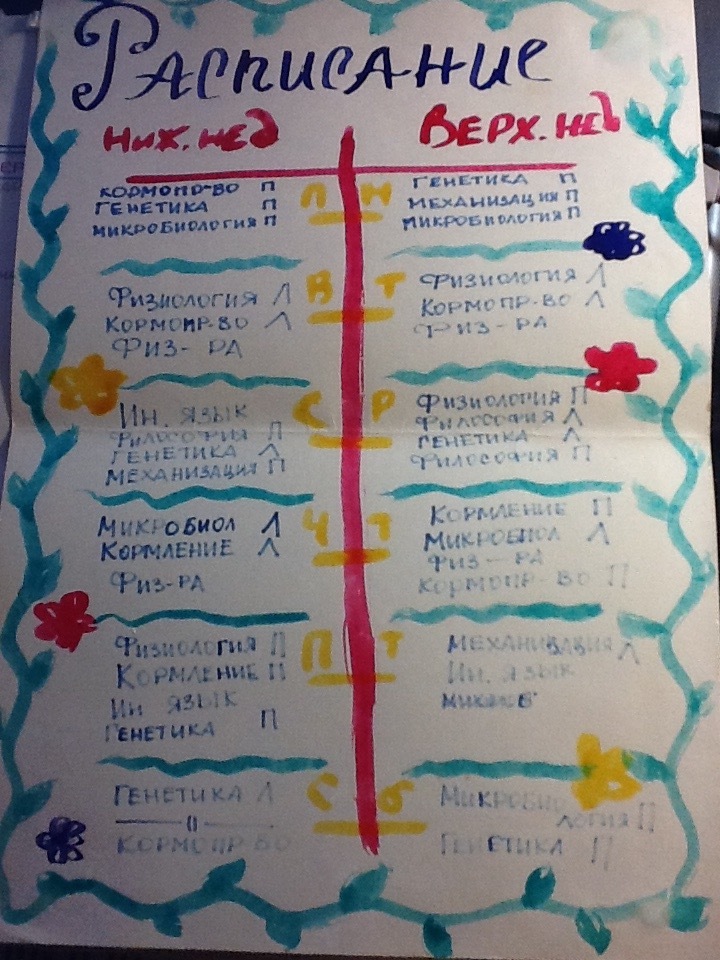 Расписание
Ниж. нед Верх. нед
ПН
Кормопр-во П
Генетика П
Микробиология П
Генетика П
Механизация П
Микробиология П
ВТ
Физиология Л
Кормопр-во Л
Физ-ра
Физиология Л
Кормопр-во Л
Физ-ра
СР
Ин. язык
Философия П
Генетика Л
Механизация П
Физиология П
Философия Л
Генетика Л
Философия П
ЧТ
Микробиол Л
Кормление Л
Физ-ра
Кормление П
Микробиол Л
Физ-ра
Кормопр-во П
ПТ
Физиология П
Кормление П
Ин язык
Генетика П
Механизация Л
Ин. язык
Сб
Генетика Л
—— 〃 ——
Кормопр-во
Микробио
логия П
Генетика П